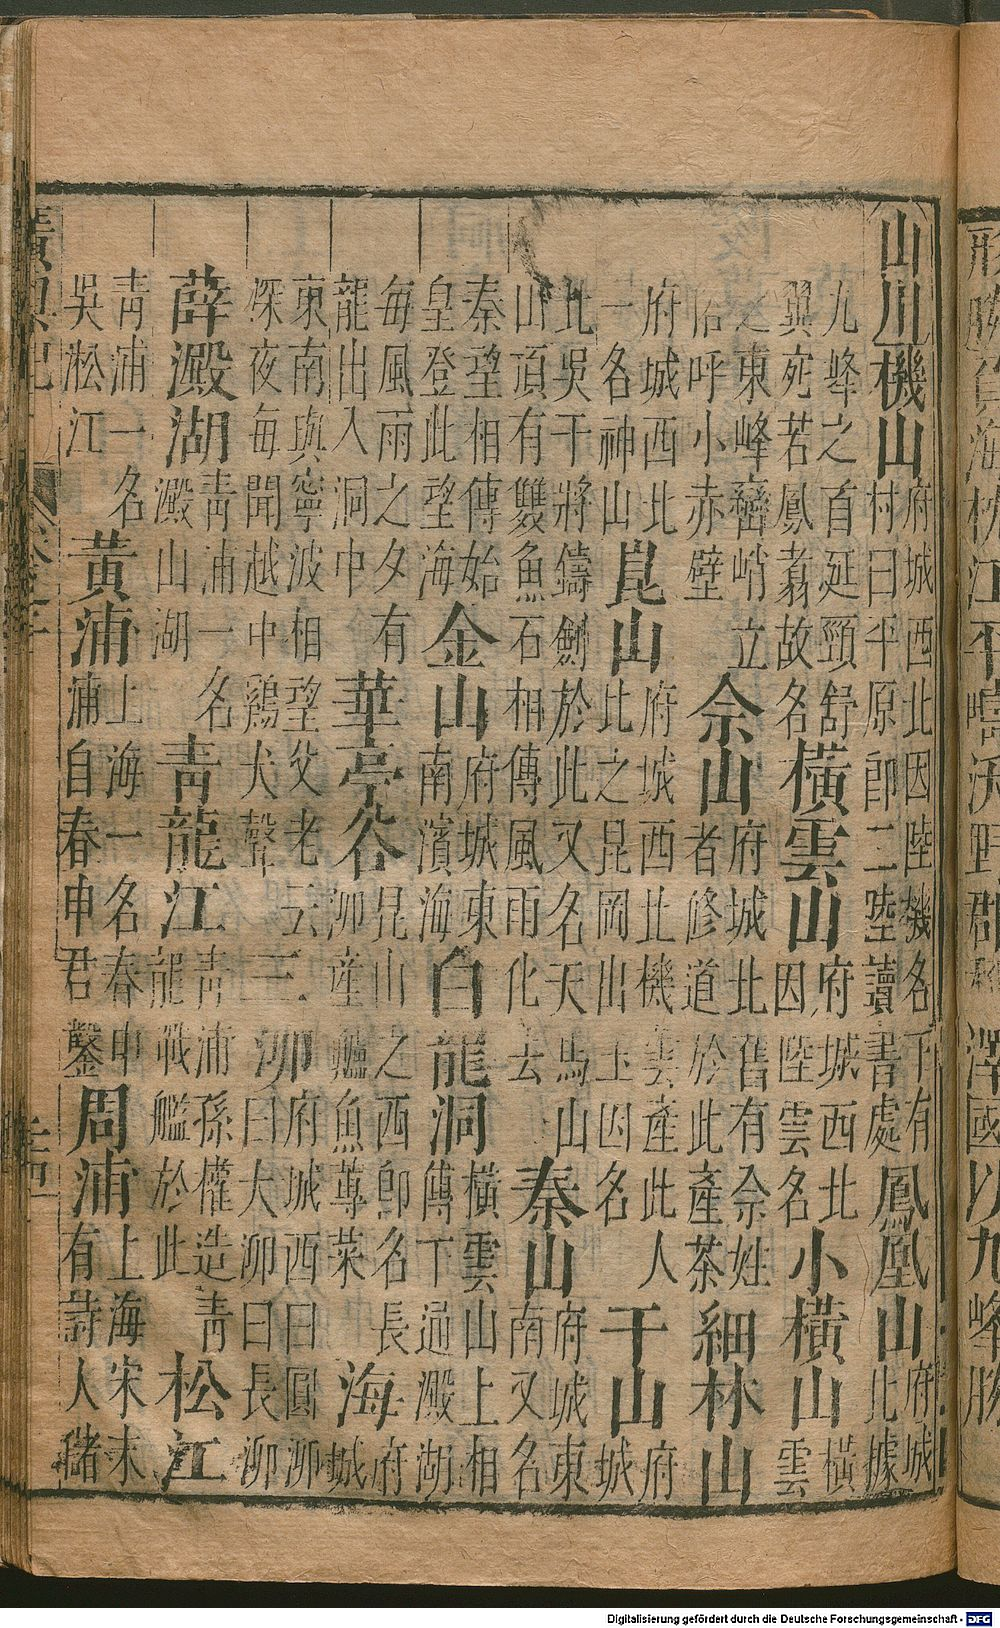 形勝負海枕江平疇沃野郡志澤國以九峰勝
山川機山府城西北因陸機名下有村曰平原即二陸讀書處鳳凰山府城北據
九峰之首延頸舒翼宛若鳳翥故名橫雲山府城西北因陸雲名小橫山橫雲
之東峰巒峭立俗呼小赤壁佘山府城北舊有佘姓者修道於此產茶細林山
府城西北一名神山崑山府城西北機雲產此人比之昆岡出玉因名干山府城
北吳干將鑄劍於此又名天馬山山頂有雙魚石相傳風雨化去秦山府城東南又名
秦望相傳始皇登此望海金山府城東南濱海白龍洞橫雲山上相傳下通澱湖
每風雨之夕有龍出入洞中華亭谷昆山之西即名長泖產鱸魚蓴菜海府城
東南與寧波相望父老云深夜每聞越中鷄犬聲三泖府城西曰圓泖曰大泖曰長泖
薛澱湖青浦一名澱山湖青龍江青浦孫權造青龍戰艦於此松江
青浦一名吳淞江黃浦上海一名春申浦自春申君鑿周浦上海宋末有詩人儲
廣輿記
Digitalisierung gefördert durch die Deutsche Forschungsgemeinschaft - DFG